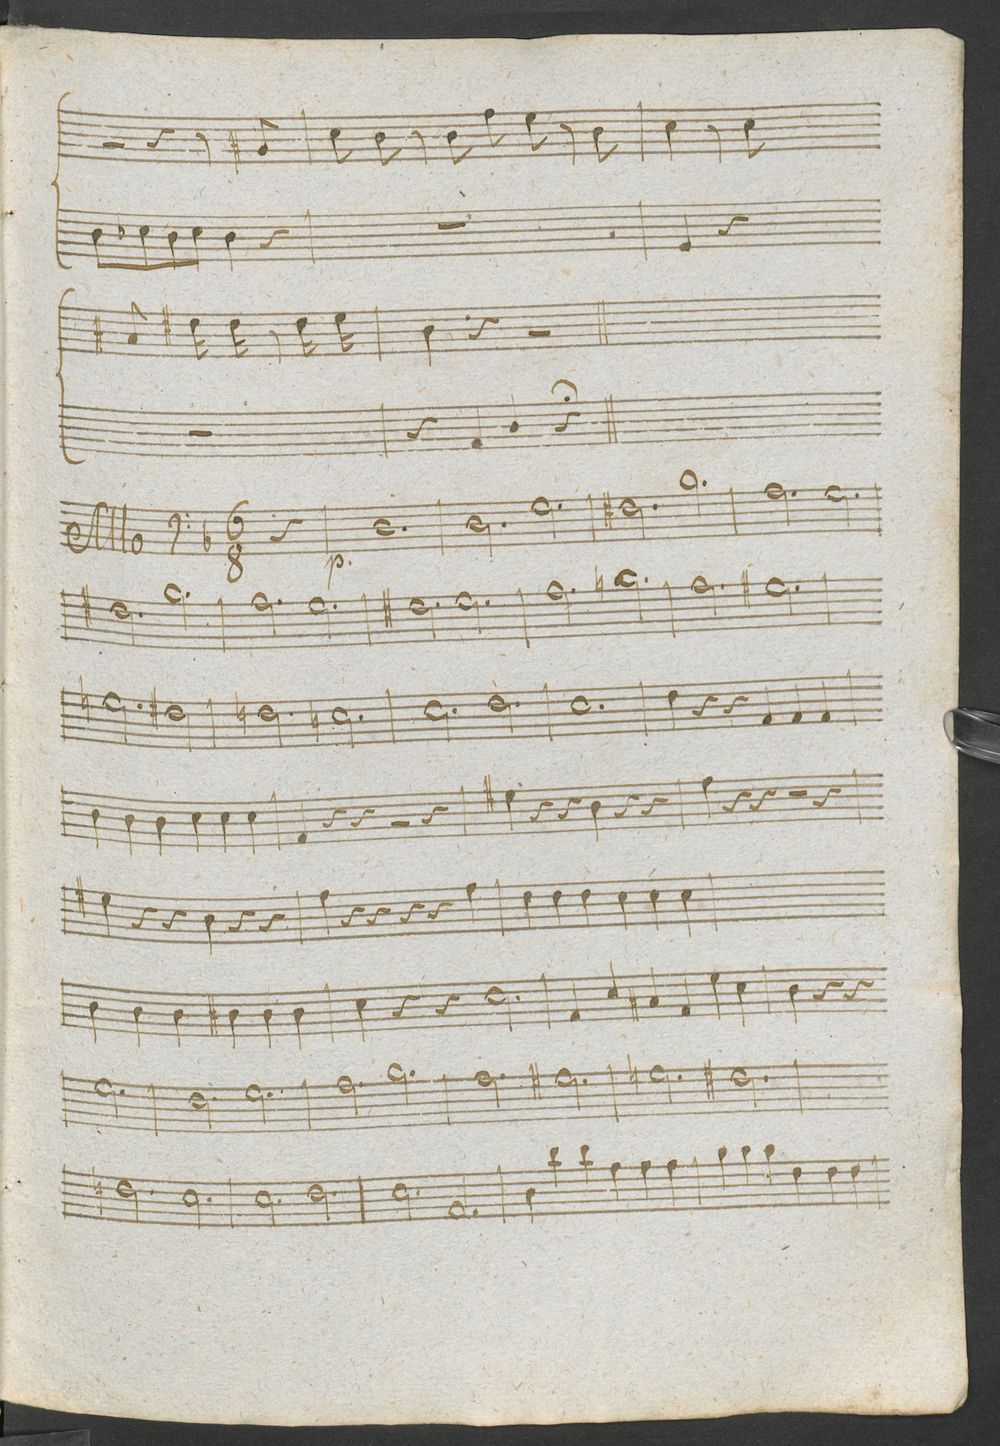 Allo 6
8
p.